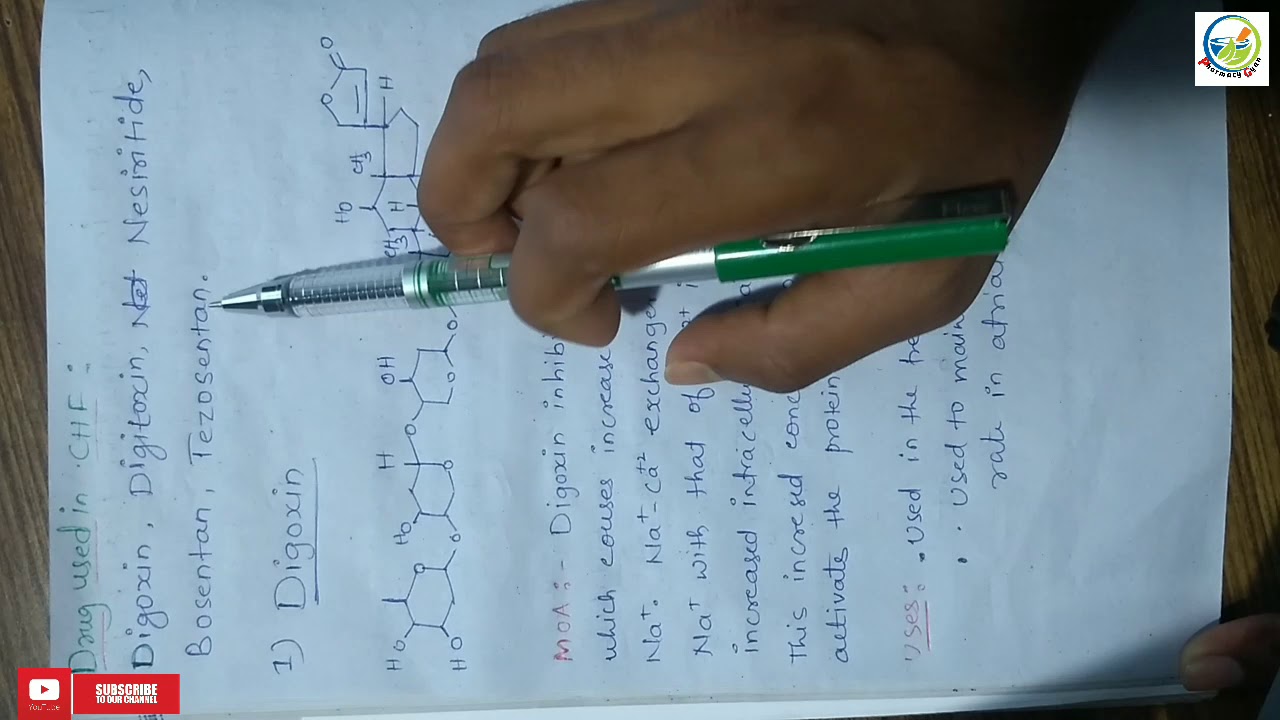 Drug used in CHF :
Digoxin, Digitoxin, Nesiritide,
Bosentan, Tezosentan.
1) Digoxin
O
O
H
CH3
HO
H
CH3
O
OH
O
O
H
O
HO
O
O
HO
HO
MOA :- Digoxin inhibi
which couses increase
Na+. Na+-Ca+2 exchange
Na+ with that of
increased intracellu
This incresed conc
activate the protein
Uses: • Used in the tre
• Used to main
rate in atria
Pharmacy Gyan
YouTube
SUBSCRIBE
TO OUR CHANNEL